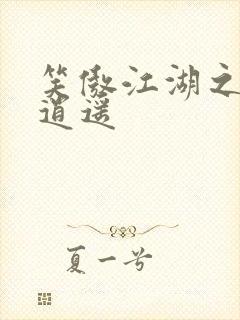 笑傲江湖之
逍遥
夏一兮